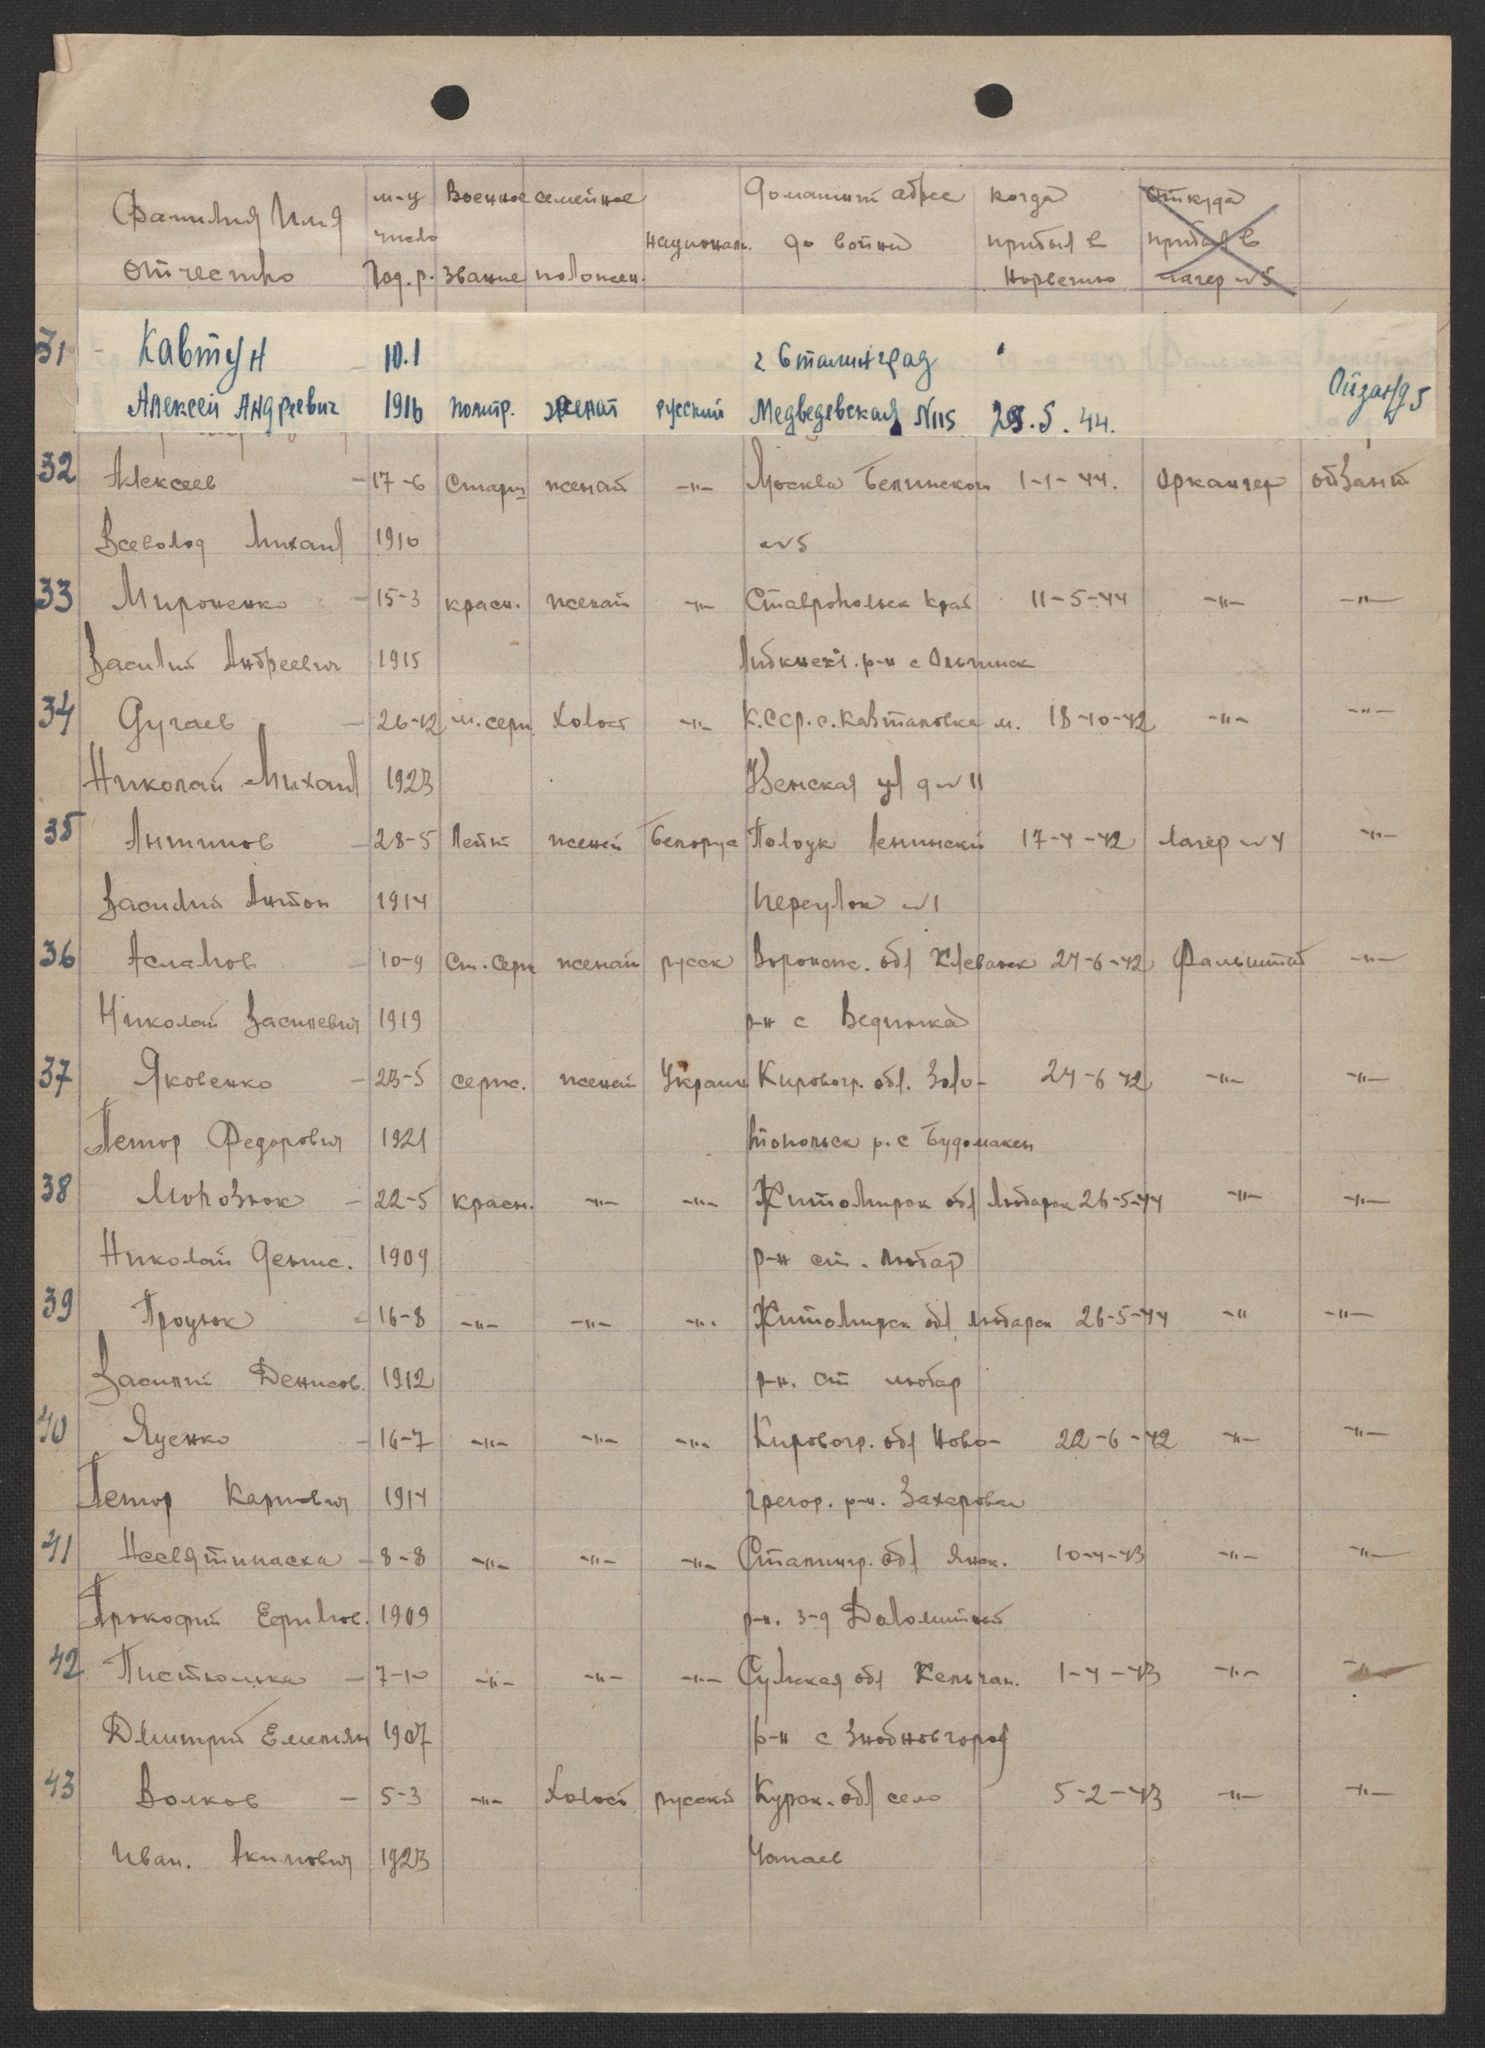 Фамилия Имя отчество | м-ц число год. р. | Военное звание | семейное положен. | национал. | Домашний адрес до войни | когда прибыл в Норвегию | откуда прибыл в лагер №5
31 - Кавтун - 10.1 г Сталинград
Алексей Андреевич 1916 политр. женат русский Медведевская №115 29.5.44. Ойзанд 5
32 Алексеев - 17-6 Старш женат -"- Москва Белинского 1-1-44. Аркангер
Всеволод Михаил 1910 №5
33 Мироненко - 15-3 красн. женат -"- Ставропольск край 11-5-44 -"- -"-
Василий Андреевич 1915 Либкнехт. р-н с Ольгинск
34 Дугаев - 26-12 м. серж. холост -"- К.ССР. с. Кавтановка м. 18-10-42 -"- -"-
Николай Михаил 1923 ул д №11
35 Антипов - 28-5 Лейт женат Белорус Полоцк Ленинский 17-4-42 Лагер №4 -"-
Василий Антон 1914 переулок №1
36 Асламов - 10-9 Ст. серж женат русск Воронеж. обл 24-6-42 Фальштат -"-
Николай Василевич 1919 р-н с
37 Яковенко - 23-5 серж. женат Украин Кировогр. обл. Золо- 24-6-42 -"- -"-
Петор Федорович 1921 топольск р. с
38 Морозюк - 22-5 красн. -"- -"- Житомирск обл Любарск 26-5-44 -"- -"-
Николай Денис. 1909 р-н ст. Любар
39 Процюк - 16-8 -"- -"- -"- Житомирск обл Любарск 26-5-44 -"- -"-
Василий Денисов. 1912 р-н. ст Любар
40 Яценко - 16-7 -"- -"- -"- Кировогр. обл Ново- 22-6-42 -"- -"-
Петор Карпович 1914 грегор. р-н. Захаровка
41 - 8-8 -"- -"- -"- Сталингр. обл 10-4-43 -"- -"-
Прокофий Ефимов. 1909 р-н. з-д Доломитной
42 - 7-10 -"- -"- -"- Сумская обл 1-4-43 -"- -"-
Дмитрий Емельян 1907 р-н с Знобновгород
43 Волков - 5-3 -"- холост русский Курск. обл село 5-2-43 -"- -"-
Иван. Акимович 1923 Чапаев